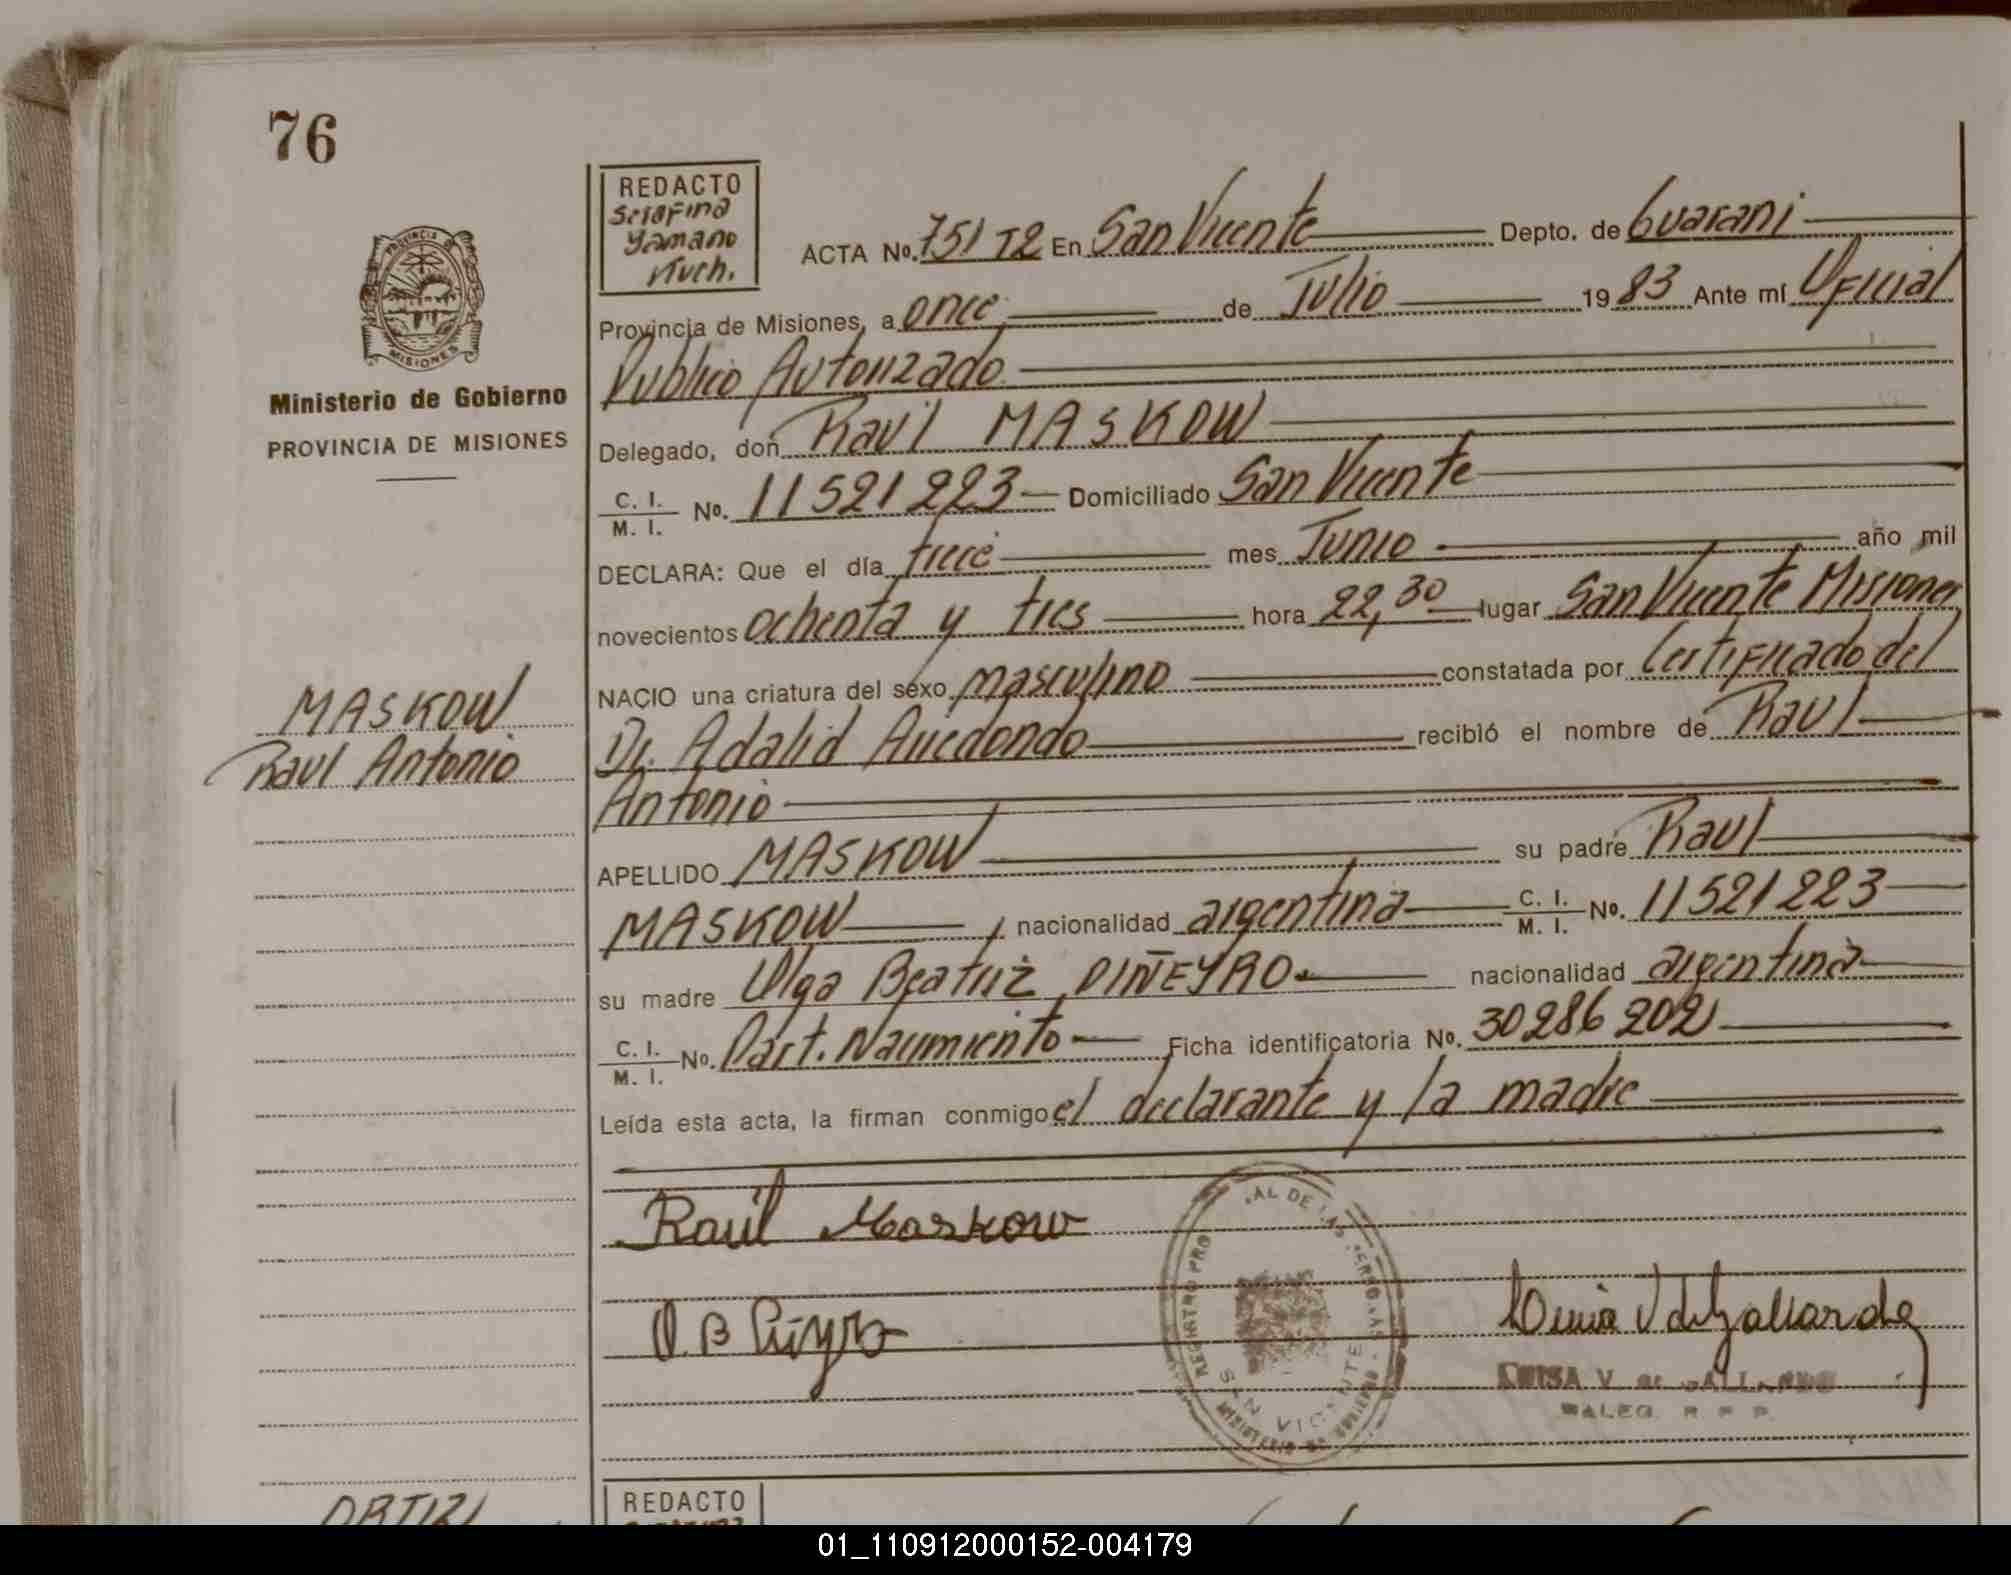 76
REDACTO
Serafina
Yamano
Ministerio de Gobierno
PROVINCIA DE MISIONES
PROVINCIA DE
MISIONES
ACTA No. 751 T2 En San Vicente Depto. de Guarani
Provincia de Misiones, a once de Julio 1983 Ante mí Oficial
Publico Autorizado
Delegado, don Raúl MASKOW
C. I. M. I. No. 11521223 Domiciliado San Vicente
DECLARA: Que el día trece mes Junio año mil
novecientos ochenta y tres hora 22,30 lugar San Vicente Misiones
NACIO una criatura del sexo masculino constatada por Certificado del
Dr. Adalid Arredondo recibió el nombre de Raul
Antonio
MASKOW
Raul Antonio
APELLIDO MASKOW su padre Raul
MASKOW, nacionalidad argentina C. I. M. I. No. 11521223
su madre Olga Beatriz PIÑEYRO nacionalidad argentina
C. I. M. I. No. Part. Nacimiento Ficha identificatoria No. 30286202
Leída esta acta, la firman conmigo el declarante y la madre
Raúl Maskow
O. B.
REGISTRO PRO AL DE LAS PERSONAS
SAN VICENTE
LUISA V. de GALLARDO
REDACTO
01_110912000152-004179